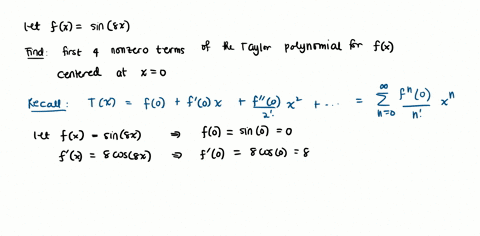 Let f(x) = sin(8x)
Find: first 4 nonzero terms of the Taylor polynomial for f(x)
centered at x=0
Recall: T(x) = f(0) + f'(0)x + f''(0)/2! x² + ... = ∞∑n=0 fⁿ(0)/n! xⁿ
let f(x) = sin(8x) ⇒ f(0) = sin(0) = 0
f'(x) = 8cos(8x) ⇒ f'(0) = 8cos(0) = 8